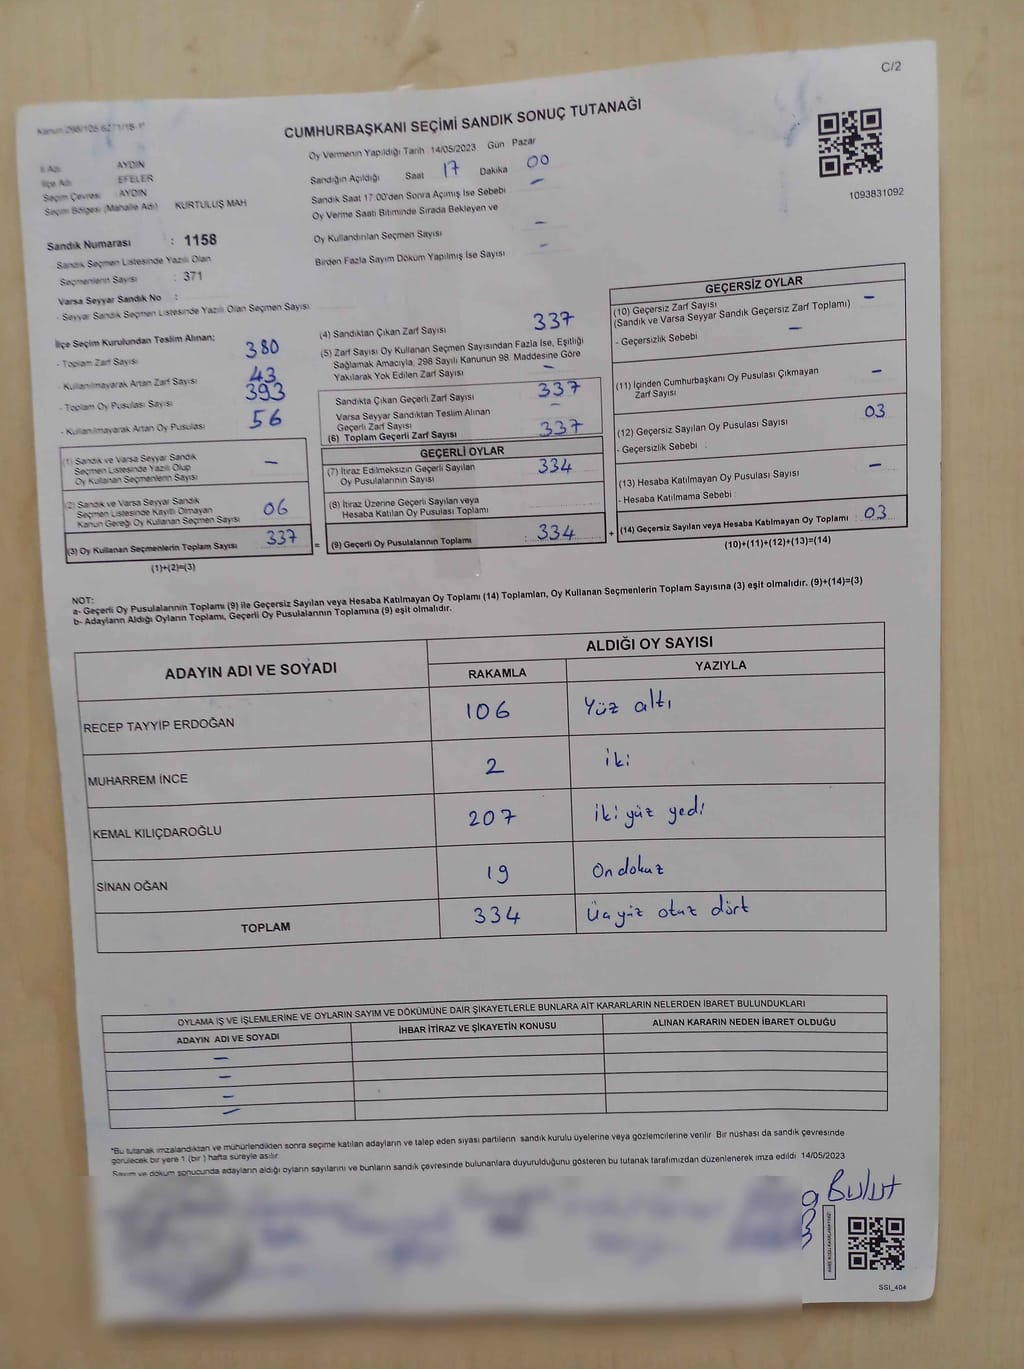 C/2
CUMHURBAŞKANI SEÇİMİ SANDIK SONUÇ TUTANAĞI
1093831092
İl Adı : AYDIN
İlçe Adı : EFELER
Seçim Çevresi : AYDIN
Seçim Bölgesi (Mahalle Adı) KURTULUŞ MAH
Sandık Numarası : 1158
Sandık Seçmen Listesinde Yazılı Olan
Seçmenlerin Sayısı : 371
Varsa Seyyar Sandık No :
- Seyyar Sandık Seçmen Listesinde Yazılı Olan Seçmen Sayısı
Oy Vermenin Yapıldığı Tarih 14/05/2023 Gün Pazar
Sandığın Açıldığı Saat 17 Dakika 00
Sandık Saat 17:00'den Sonra Açımış İse Sebebi –
Oy Verme Saati Bitiminde Sırada Bekleyen ve
Oy Kullandırılan Seçmen Sayısı –
Birden Fazla Sayım Döküm Yapılmış İse Sayısı –
İlçe Seçim Kurulundan Teslim Alınan;
- Toplam Zarf Sayısı 380
- Kullanılmayarak Artan Zarf Sayısı 43
- Toplam Oy Pusulası Sayısı 393
- Kullanılmayarak Artan Oy Pusulası 56
(1) Sandık ve Varsa Seyyar Sandık
Seçmen Listesinde Yazılı Olup
Oy Kullanan Seçmenlerin Sayısı –
(2) Sandık ve Varsa Seyyar Sandık
Seçmen Listesinde Kayıtlı Olmayan
Kanun Gereği Oy Kullanan Seçmen Sayısı 06
(3) Oy Kullanan Seçmenlerin Toplam Sayısı 337
(1)+(2)=(3)
(4) Sandıktan Çıkan Zarf Sayısı 337
(5) Zarf Sayısı Oy Kullanan Seçmen Sayısından Fazla İse, Eşitliği
Sağlamak Amacıyla, 298 Sayılı Kanunun 98. Maddesine Göre
Yakılarak Yok Edilen Zarf Sayısı –
Sandıkta Çıkan Geçerli Zarf Sayısı 337
Varsa Seyyar Sandıktan Teslim Alınan
Geçerli Zarf Sayısı –
(6) Toplam Geçerli Zarf Sayısı 337
GEÇERLİ OYLAR
(7) İtiraz Edilmeksizin Geçerli Sayılan
Oy Pusulalarının Sayısı 334
(8) İtiraz Üzerine Geçerli Sayılan veya
Hesaba Katılan Oy Pusulası Toplamı
= (9) Geçerli Oy Pusulalarının Toplamı : 334
GEÇERSİZ OYLAR
(10) Geçersiz Zarf Sayısı
(Sandık ve Varsa Seyyar Sandık Geçersiz Zarf Toplamı) –
- Geçersizlik Sebebi –
(11) İçinden Cumhurbaşkanı Oy Pusulası Çıkmayan
Zarf Sayısı –
(12) Geçersiz Sayılan Oy Pusulası Sayısı 03
- Geçersizlik Sebebi :
(13) Hesaba Katılmayan Oy Pusulası Sayısı –
- Hesaba Katılmama Sebebi :
+ (14) Geçersiz Sayılan veya Hesaba Katılmayan Oy Toplamı : 03
(10)+(11)+(12)+(13)=(14)
NOT:
a- Geçerli Oy Pusulalarının Toplamı (9) ile Geçersiz Sayılan veya Hesaba Katılmayan Oy Toplamı (14) Toplamları, Oy Kullanan Seçmenlerin Toplam Sayısına (3) eşit olmalıdır. (9)+(14)=(3)
b- Adayların Aldığı Oyların Toplamı, Geçerli Oy Pusulalarının Toplamına (9) eşit olmalıdır.
ADAYIN ADI VE SOYADI ALDIĞI OY SAYISI
RAKAMLA YAZIYLA
RECEP TAYYİP ERDOĞAN 106 Yüz altı
MUHARREM İNCE 2 iki
KEMAL KILIÇDAROĞLU 207 iki yüz yedi
SİNAN OĞAN 19 On dokuz
TOPLAM 334 Üç yüz otuz dört
OYLAMA İŞ VE İŞLEMLERİNE VE OYLARIN SAYIM VE DÖKÜMÜNE DAİR ŞİKAYETLERLE BUNLARA AİT KARARLARIN NELERDEN İBARET BULUNDUKLARI
ADAYIN ADI VE SOYADI İHBAR İTİRAZ VE ŞİKAYETİN KONUSU ALINAN KARARIN NEDEN İBARET OLDUĞU
–
–
–
–
*Bu tutanak imzalandıktan ve mühürlendikten sonra seçime katılan adayların ve talep eden siyasi partilerin sandık kurulu üyelerine veya gözlemcilerine verilir. Bir nüshası da sandık çevresinde
görülecek bir yere 1 (bir) hafta süreyle asılır.
Sayım ve döküm sonucunda adayların aldığı oyların sayılarını ve bunların sandık çevresinde bulunanlara duyurulduğunu gösteren bu tutanak tarafımızdan düzenlenerek imza edildi 14/05/2023
Bulut
SSI_404